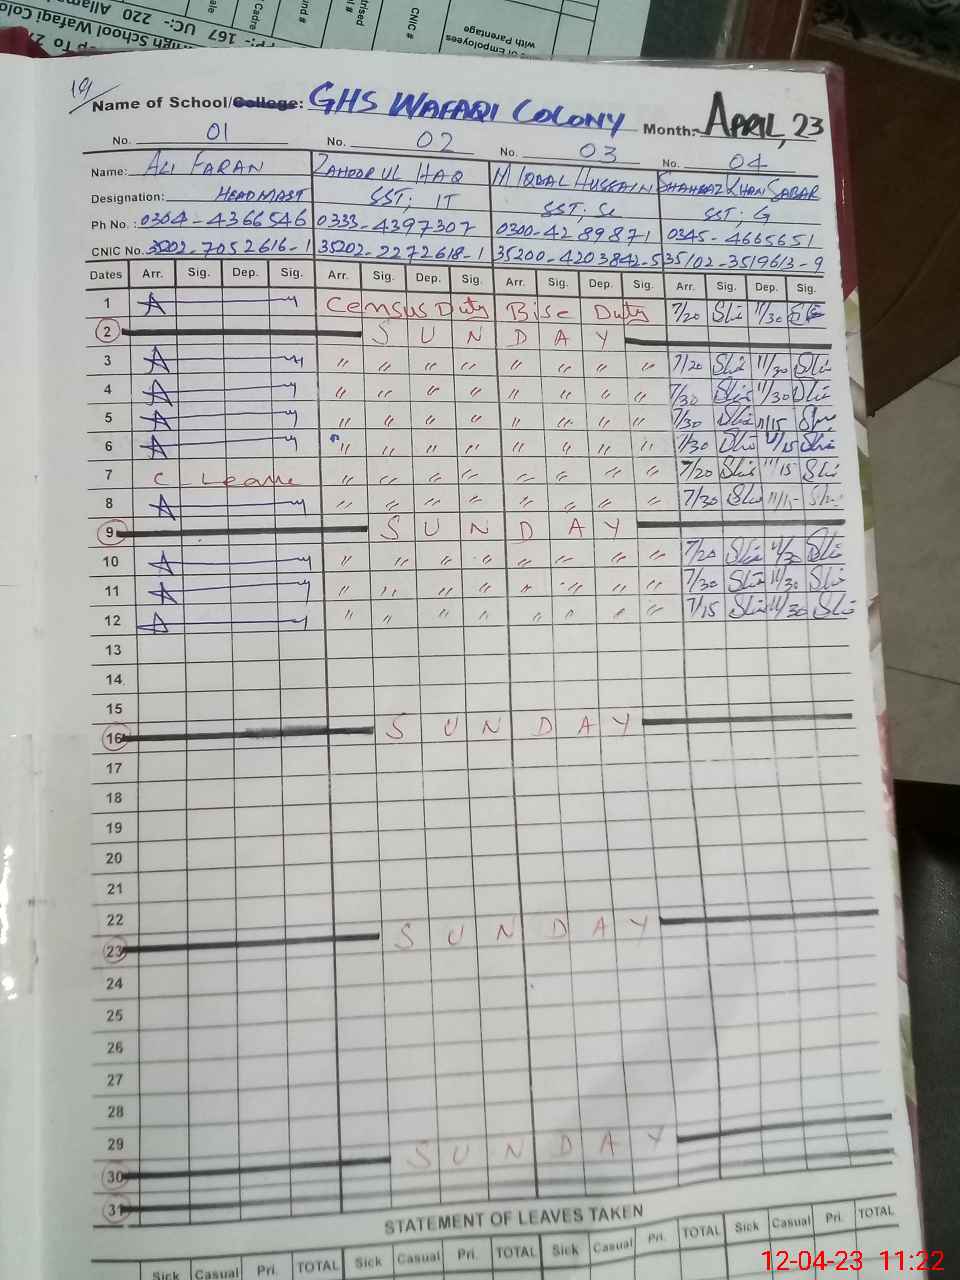 19/
Name of School/College: GHS WAFAQI COLONY Month:- APRIL, 23
No. 01 No. 02 No. 03 No. 04
Name: ALI FARAN ZAHOOR UL HAQ M IQBAL HUSSAIN SHAHBAZ KHAN SABAR
Designation: HEADMAST SST; IT SST; Sc SST; G
Ph No.: 0304-4366546 0333-4397307 0300-4289871 0345-4665651
CNIC No. 35202-7052616-1 35202-2272618-1 35200-4203842-5 35102-3519613-9
Dates Arr. Sig. Dep. Sig. Arr. Sig. Dep. Sig. Arr. Sig. Dep. Sig. Arr. Sig. Dep. Sig.
1 Census Duty Bise Duty 7/20 11/30
2 SUNDAY
3 " " " " " " " " 7/20 11/30
4 " " " " " " " " 7/30 11/30
5 " " " " " " " " 7/30 11/15
6 " " " " " " " " 7/30 11/15
7 C Leave " " " " " " " " 7/20 11/15
8 " " " " " " " " 7/30 11/15
9 SUNDAY
10 " " " " " " " " 7/20 11/30
11 " " " " " " " " 7/30 11/30
12 " " " " " " " " 7/15 11/30
13
14
15
16 SUNDAY
17
18
19
20
21
22
23 SUNDAY
24
25
26
27
28
29
30 SUNDAY
31
STATEMENT OF LEAVES TAKEN
Sick Casual Pri. TOTAL Sick Casual Pri. TOTAL Sick Casual Pri. TOTAL Sick Casual Pri. TOTAL
12-04-23 11:22